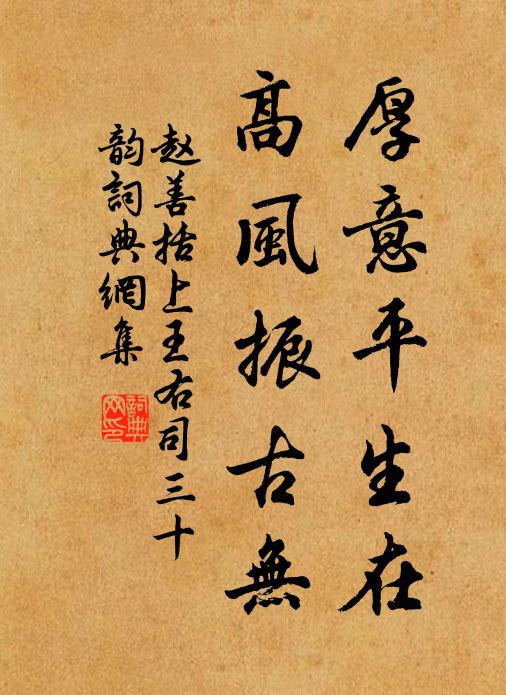 厚意平生在
高風振古無
赵善括上王右司三十
韵詞典網集
詞典网印